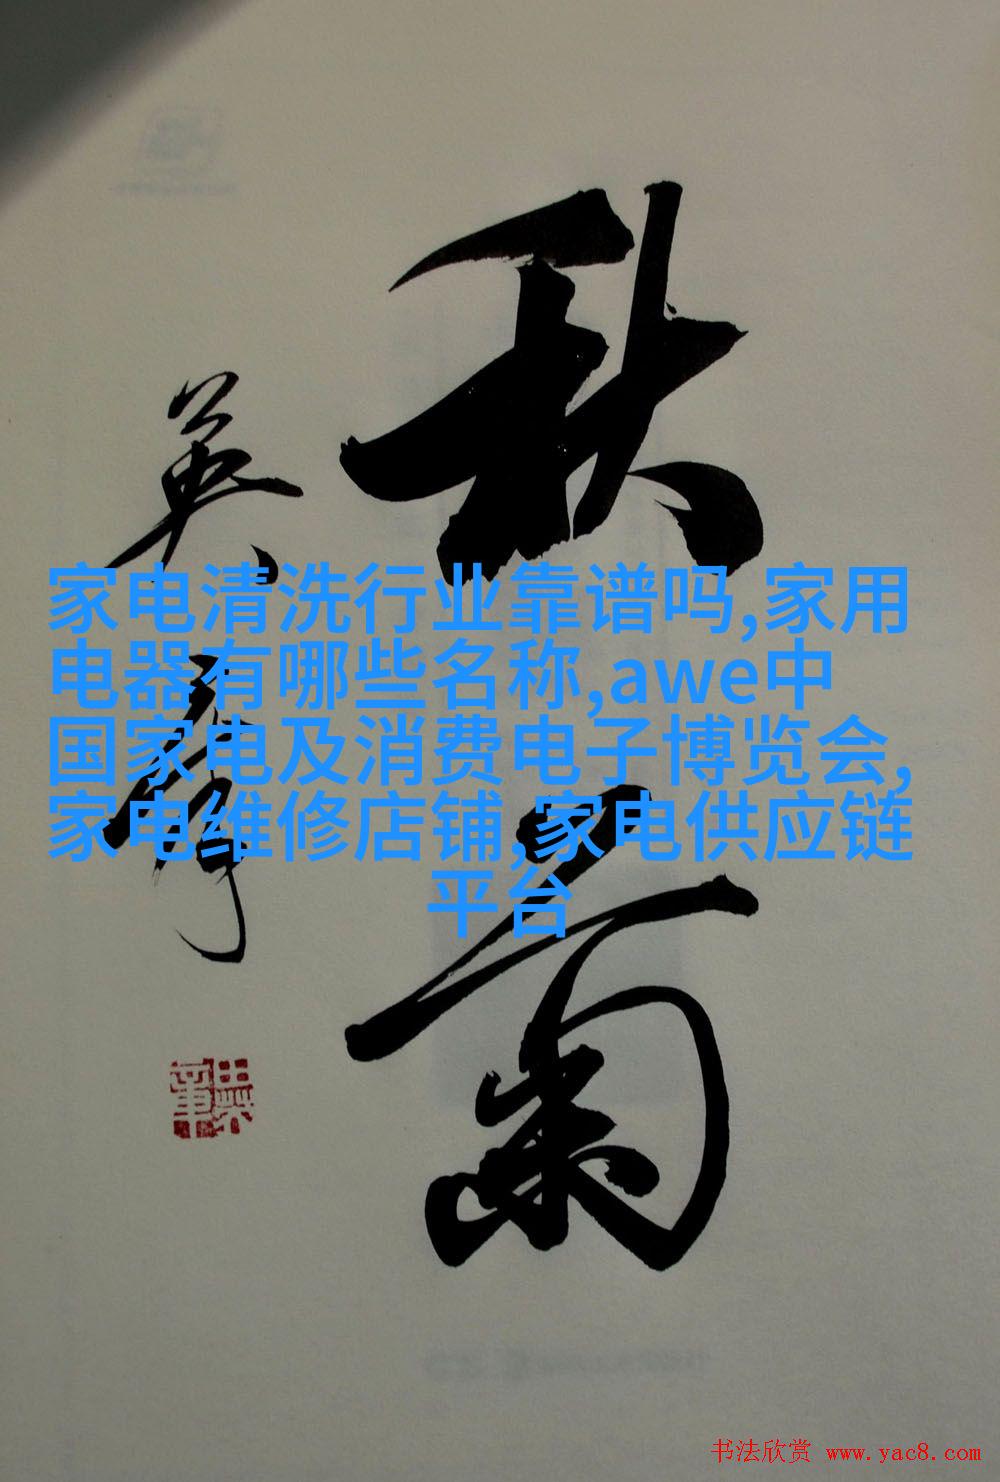 秋菊
家电清洗行业靠谱吗,家用
电器有哪些名称,awe中
国家电及消费电子博览会,
家电维修店铺,家电供应链
平台
书法欣赏 www.yac8.com